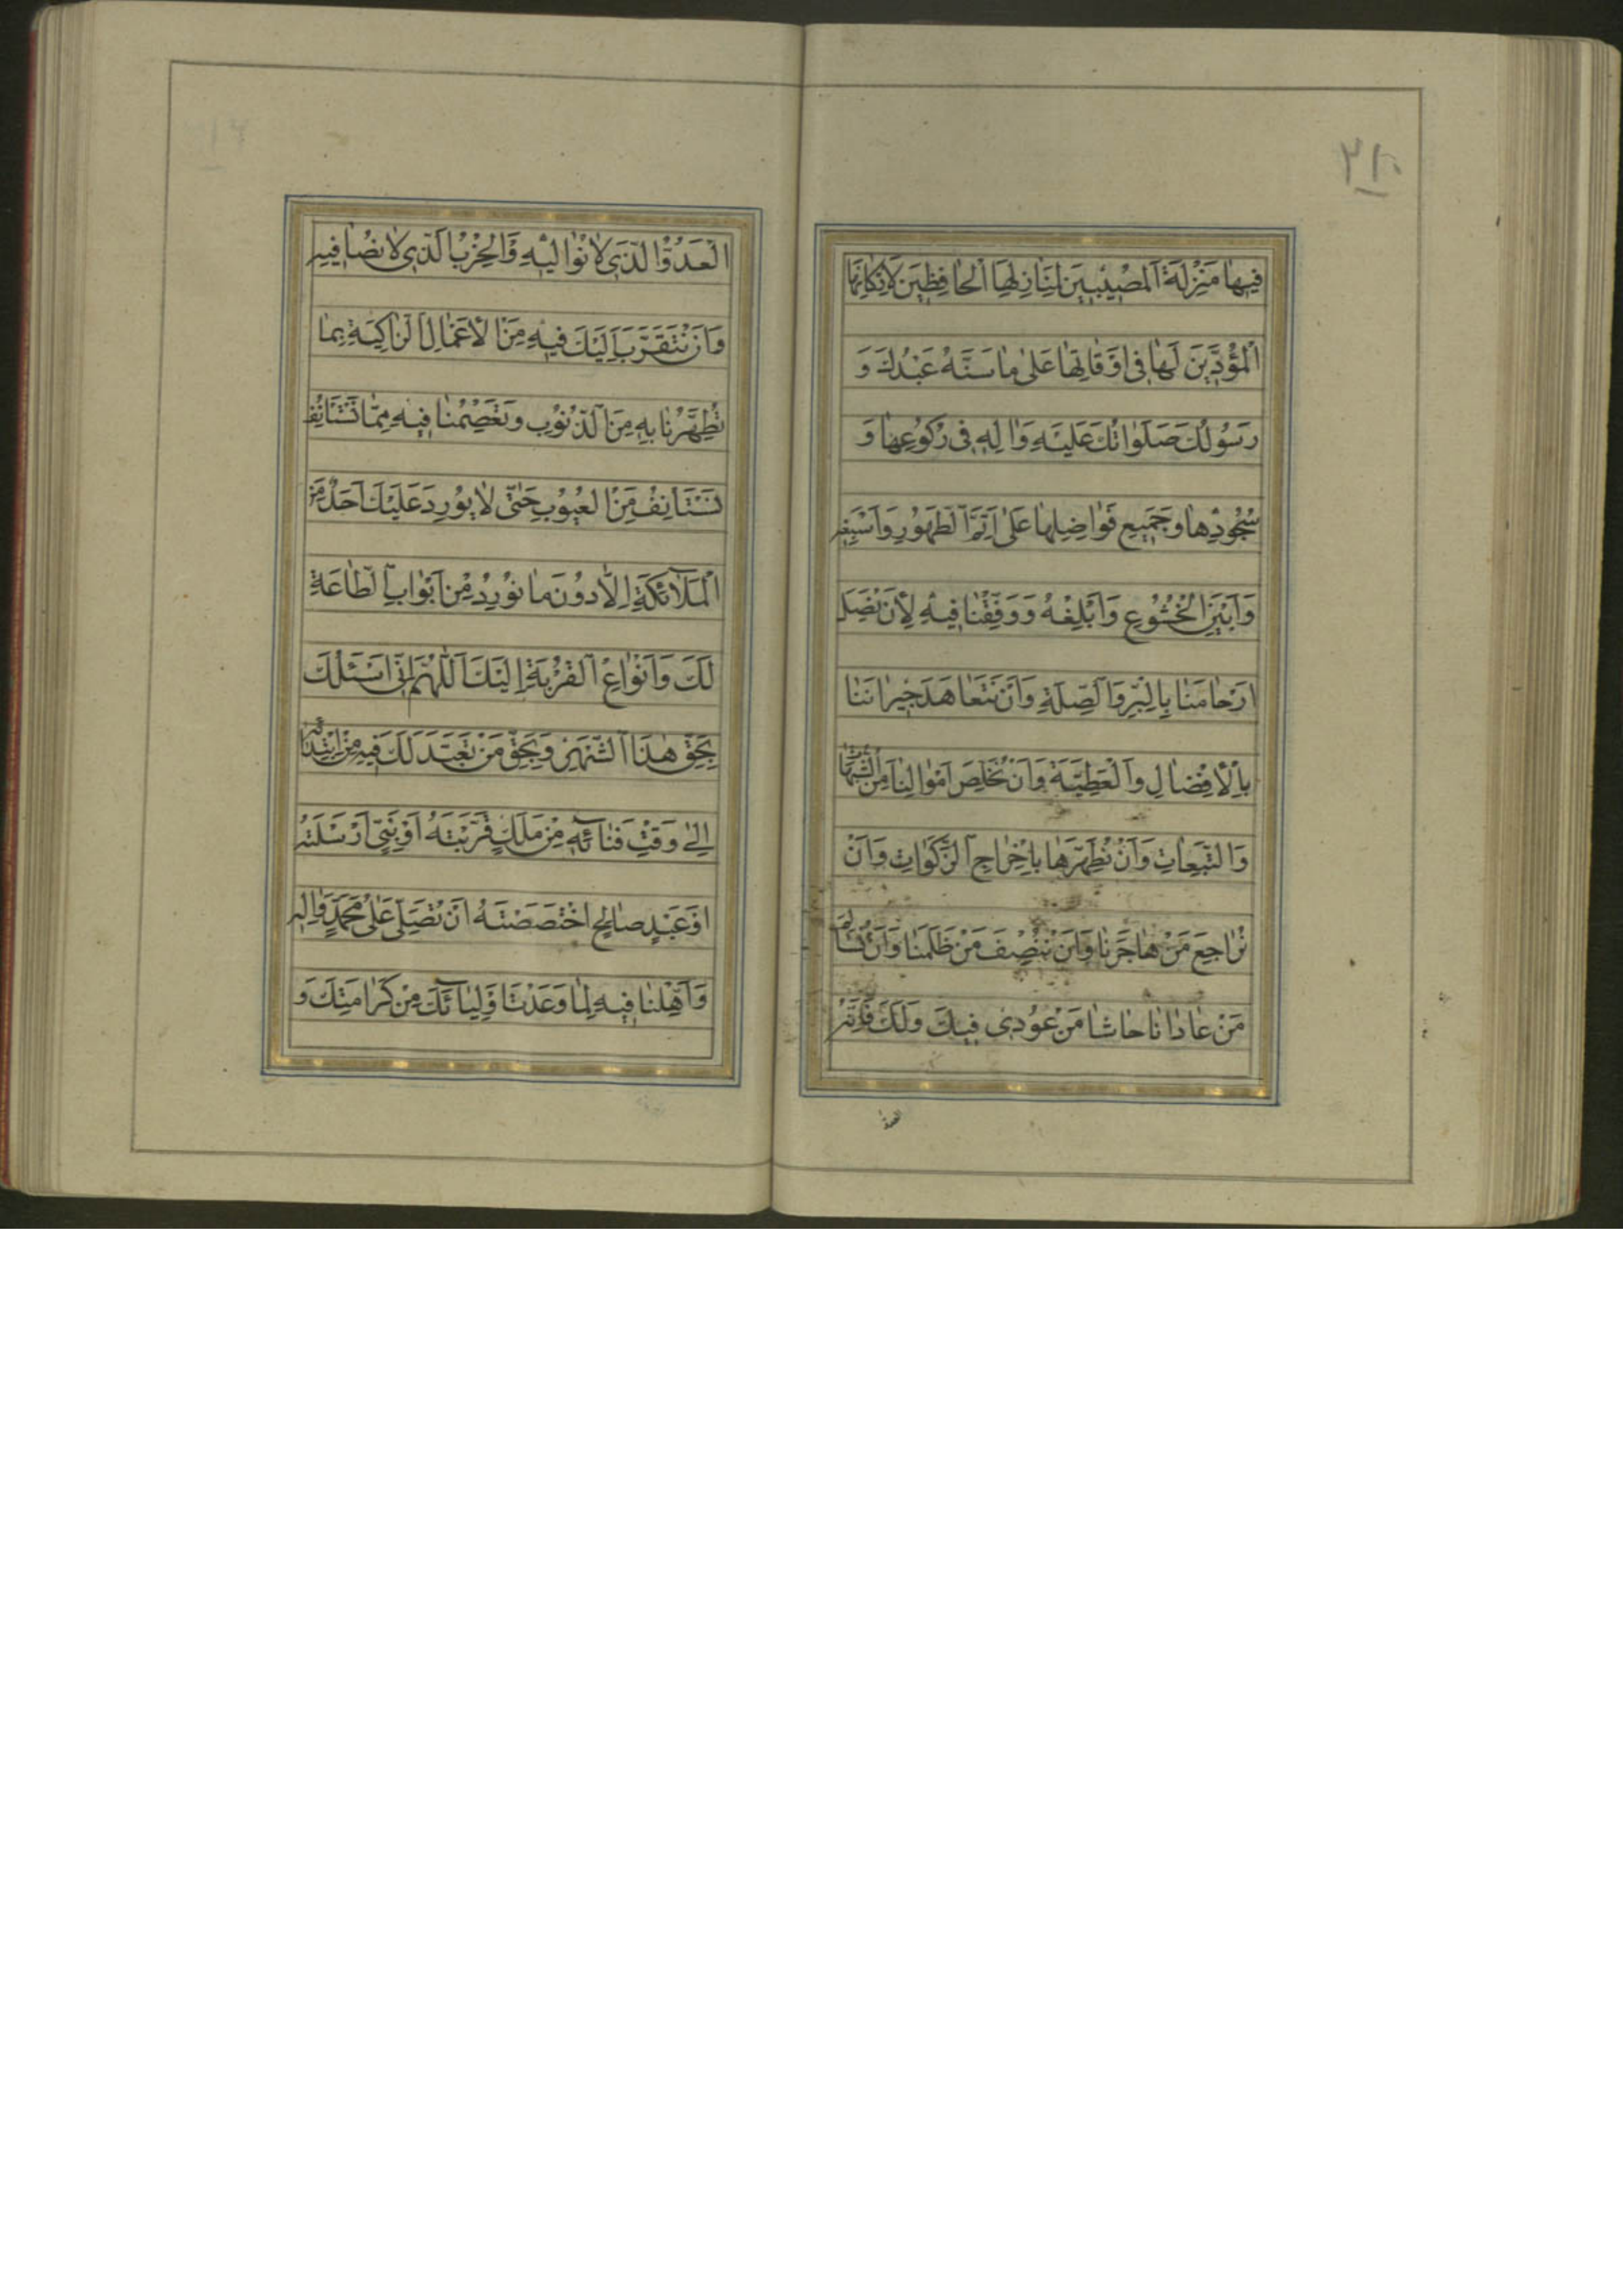 ٢١٠
فيهٰا مَنْزِلَةَ اَلْمُصيٖبيٖنَ لِمَنٰازِلِهَا اَلْحٰافِظيٖنَ لِاَرْكٰانِهَا
اَلْمُؤَدّيٖنَ لَهٰا فيٖ اَوْقٰاتِهٰا عَلىٰ مٰا سَنَّهُ عَبْدُكَ وَ
رَسُولُكَ صَلَوٰاتُكَ عَلَيْهِ وَاٰلِهِ فيٖ رُكُوعِهٰا وَ
سُجُودِهٰا وَجَميٖعِ فَوٰاضِلِهٰا عَلىٰ اَتَمِّ اَلطَّهُورِ وَاَسْبَغِهِ
وَاَبْيَنِ اَلْخُشُوعِ وَاَبْلَغِهُ وَوَفِّقْنٰا فيٖهِ لِاَنْ نَصِلَ
اَرْحٰامَنٰا بِالْبِرِّ وَاَلصِّلَةِ وَاَنْ نَتَعٰاهَدَ جيٖرٰانَنٰا
بِاْلاِفْضٰالِ وَاَلْعَطِيَّةِ وَاَنْ نُخَلِّصَ اَمْوٰالَنٰا مِنَ
وَالتَّبِعٰاتِ وَاَنْ نُطَهِّرَهٰا بِاِخْرٰاجِ اَلزَّكَوٰاتِ وَاَنْ
نُرٰاجِعَ مَنْ هٰاجَرَنٰا وَاَنْ نُنْصِفَ مَنْ ظَلَمَنٰا وَاَنْ نُسٰالِمَ
مَنْ عٰادٰانٰا حٰاشٰا مَنْ عُودِيَ فيٖكَ وَلَكَ فَاِنَّهُ
العدو
اَلْعَدُوُّ اَلَّذيٖ لاٰ نُوٰاليٖهِ وَاَلْحِزْبُ اَلَّذيٖ لاٰ نُصٰافيٖهِ
وَاَنْ نَتَقَرَّبَ اِلَيْكَ فيٖهِ مِنَ اْلاَعْمٰالِ اَلزّٰاكِيَةِ بِمٰا
تُطَهِّرُنٰا بِهِ مِنَ اَلذُّنُوبِ وَتَعْصِمُنٰا فيٖهِ مِمّٰا نَسْتَانِفُ
نَسْتَانِفُ مِنَ اَلْعُيُوبِ حَتّىٰ لاٰ يُورِدَ عَلَيْكَ اَحَدٌ مِنَ
اَلْمَلاٰئِكَةِ اِلاّٰ دُونَ مٰا نُورِدُ مِنْ اَبْوٰابِ اَلطّٰاعَةِ
لَكَ وَاَنْوٰاعِ اَلْقُرْبَةِ اِلَيْكَ اَللّٰهُمَّ اِنّيٖ اَسْئَلُكَ
بِحَقِّ هٰذَا اَلشَّهْرِ وَبِحَقِّ مَنْ تَعَبَّدَ لَكَ فيٖهِ مِنْ اِبْتِدٰائِهِ
اِلىٰ وَقْتِ فَنٰائِهِ مِنْ مَلَكٍ قَرَّبْتَهُ اَوْ نَبِيٍّ اَرْسَلْتَهُ
اَوْ عَبْدٍ صٰالِحٍ اخْتَصَصْتَهُ اَنْ تُصَلِّيَ عَلىٰ مُحَمَّدٍ وَاٰلِهِ
وَاَهِّلْنٰا فيٖهِ لِمٰا وَعَدْتَ اَوْلِيٰائَكَ مِنْ كَرٰامَتِكَ وَ